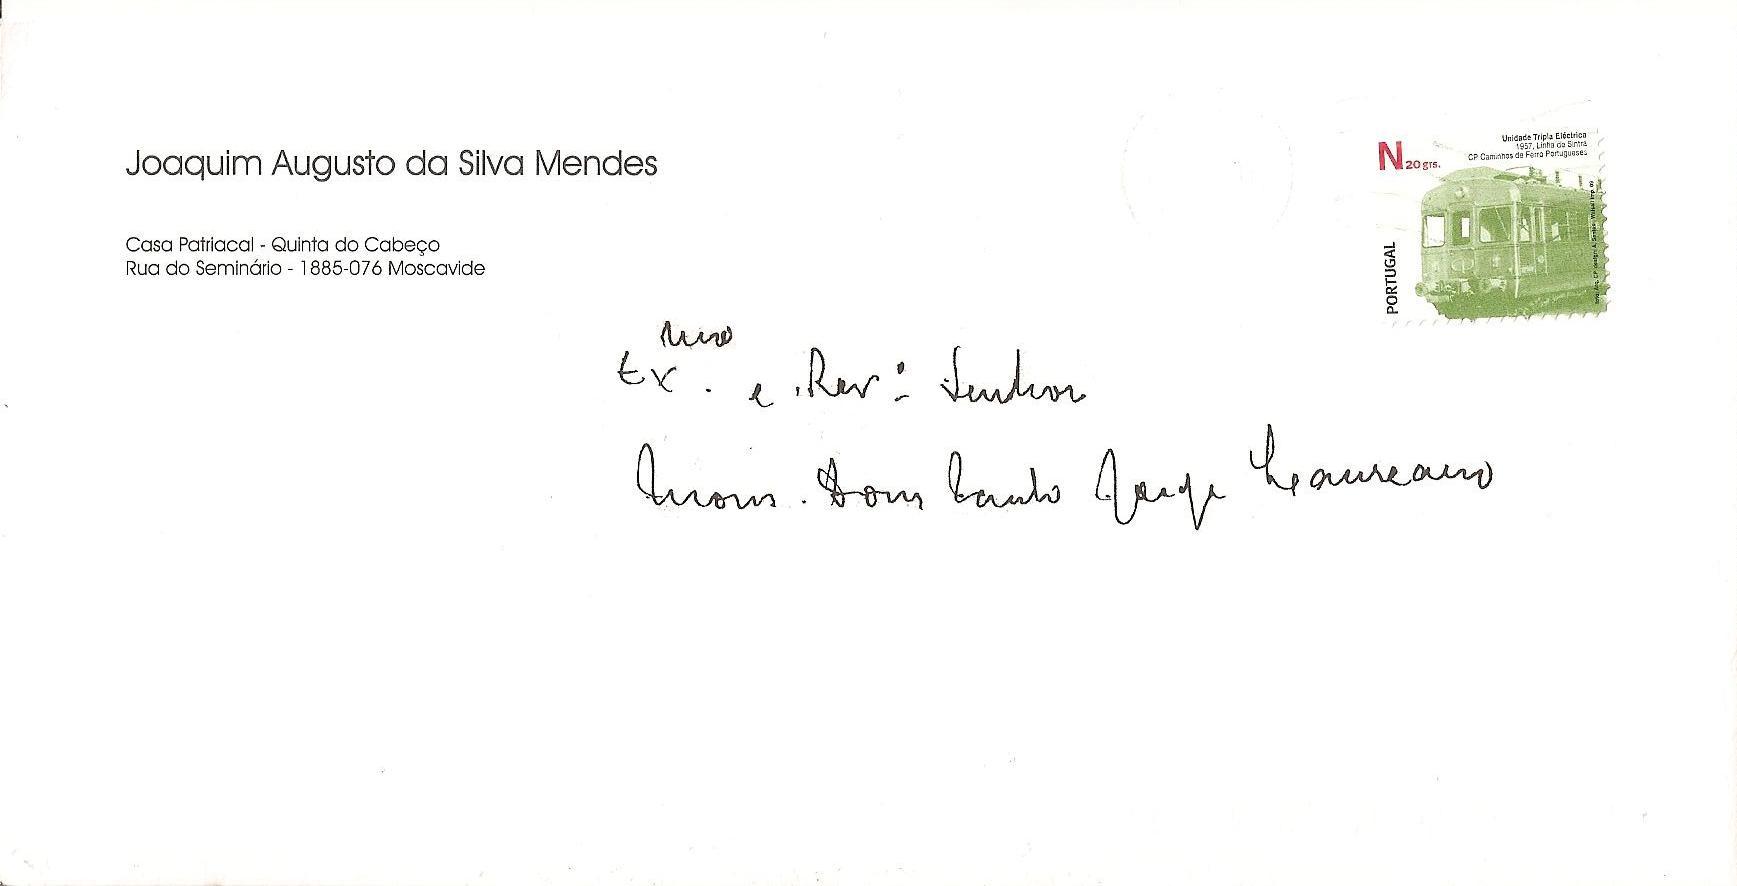 Joaquim Augusto da Silva Mendes
Casa Patriacal - Quinta do Cabeço
Rua do Seminário - 1885-076 Moscavide
Unidade Tripla Eléctrica
1957, Linha de Sintra
CP Caminhos de Ferro Portugueses
N20grs.
PORTUGAL
Exmo. e Rev.º Senhor
Mons. Dom Paulo Jorge Laureano